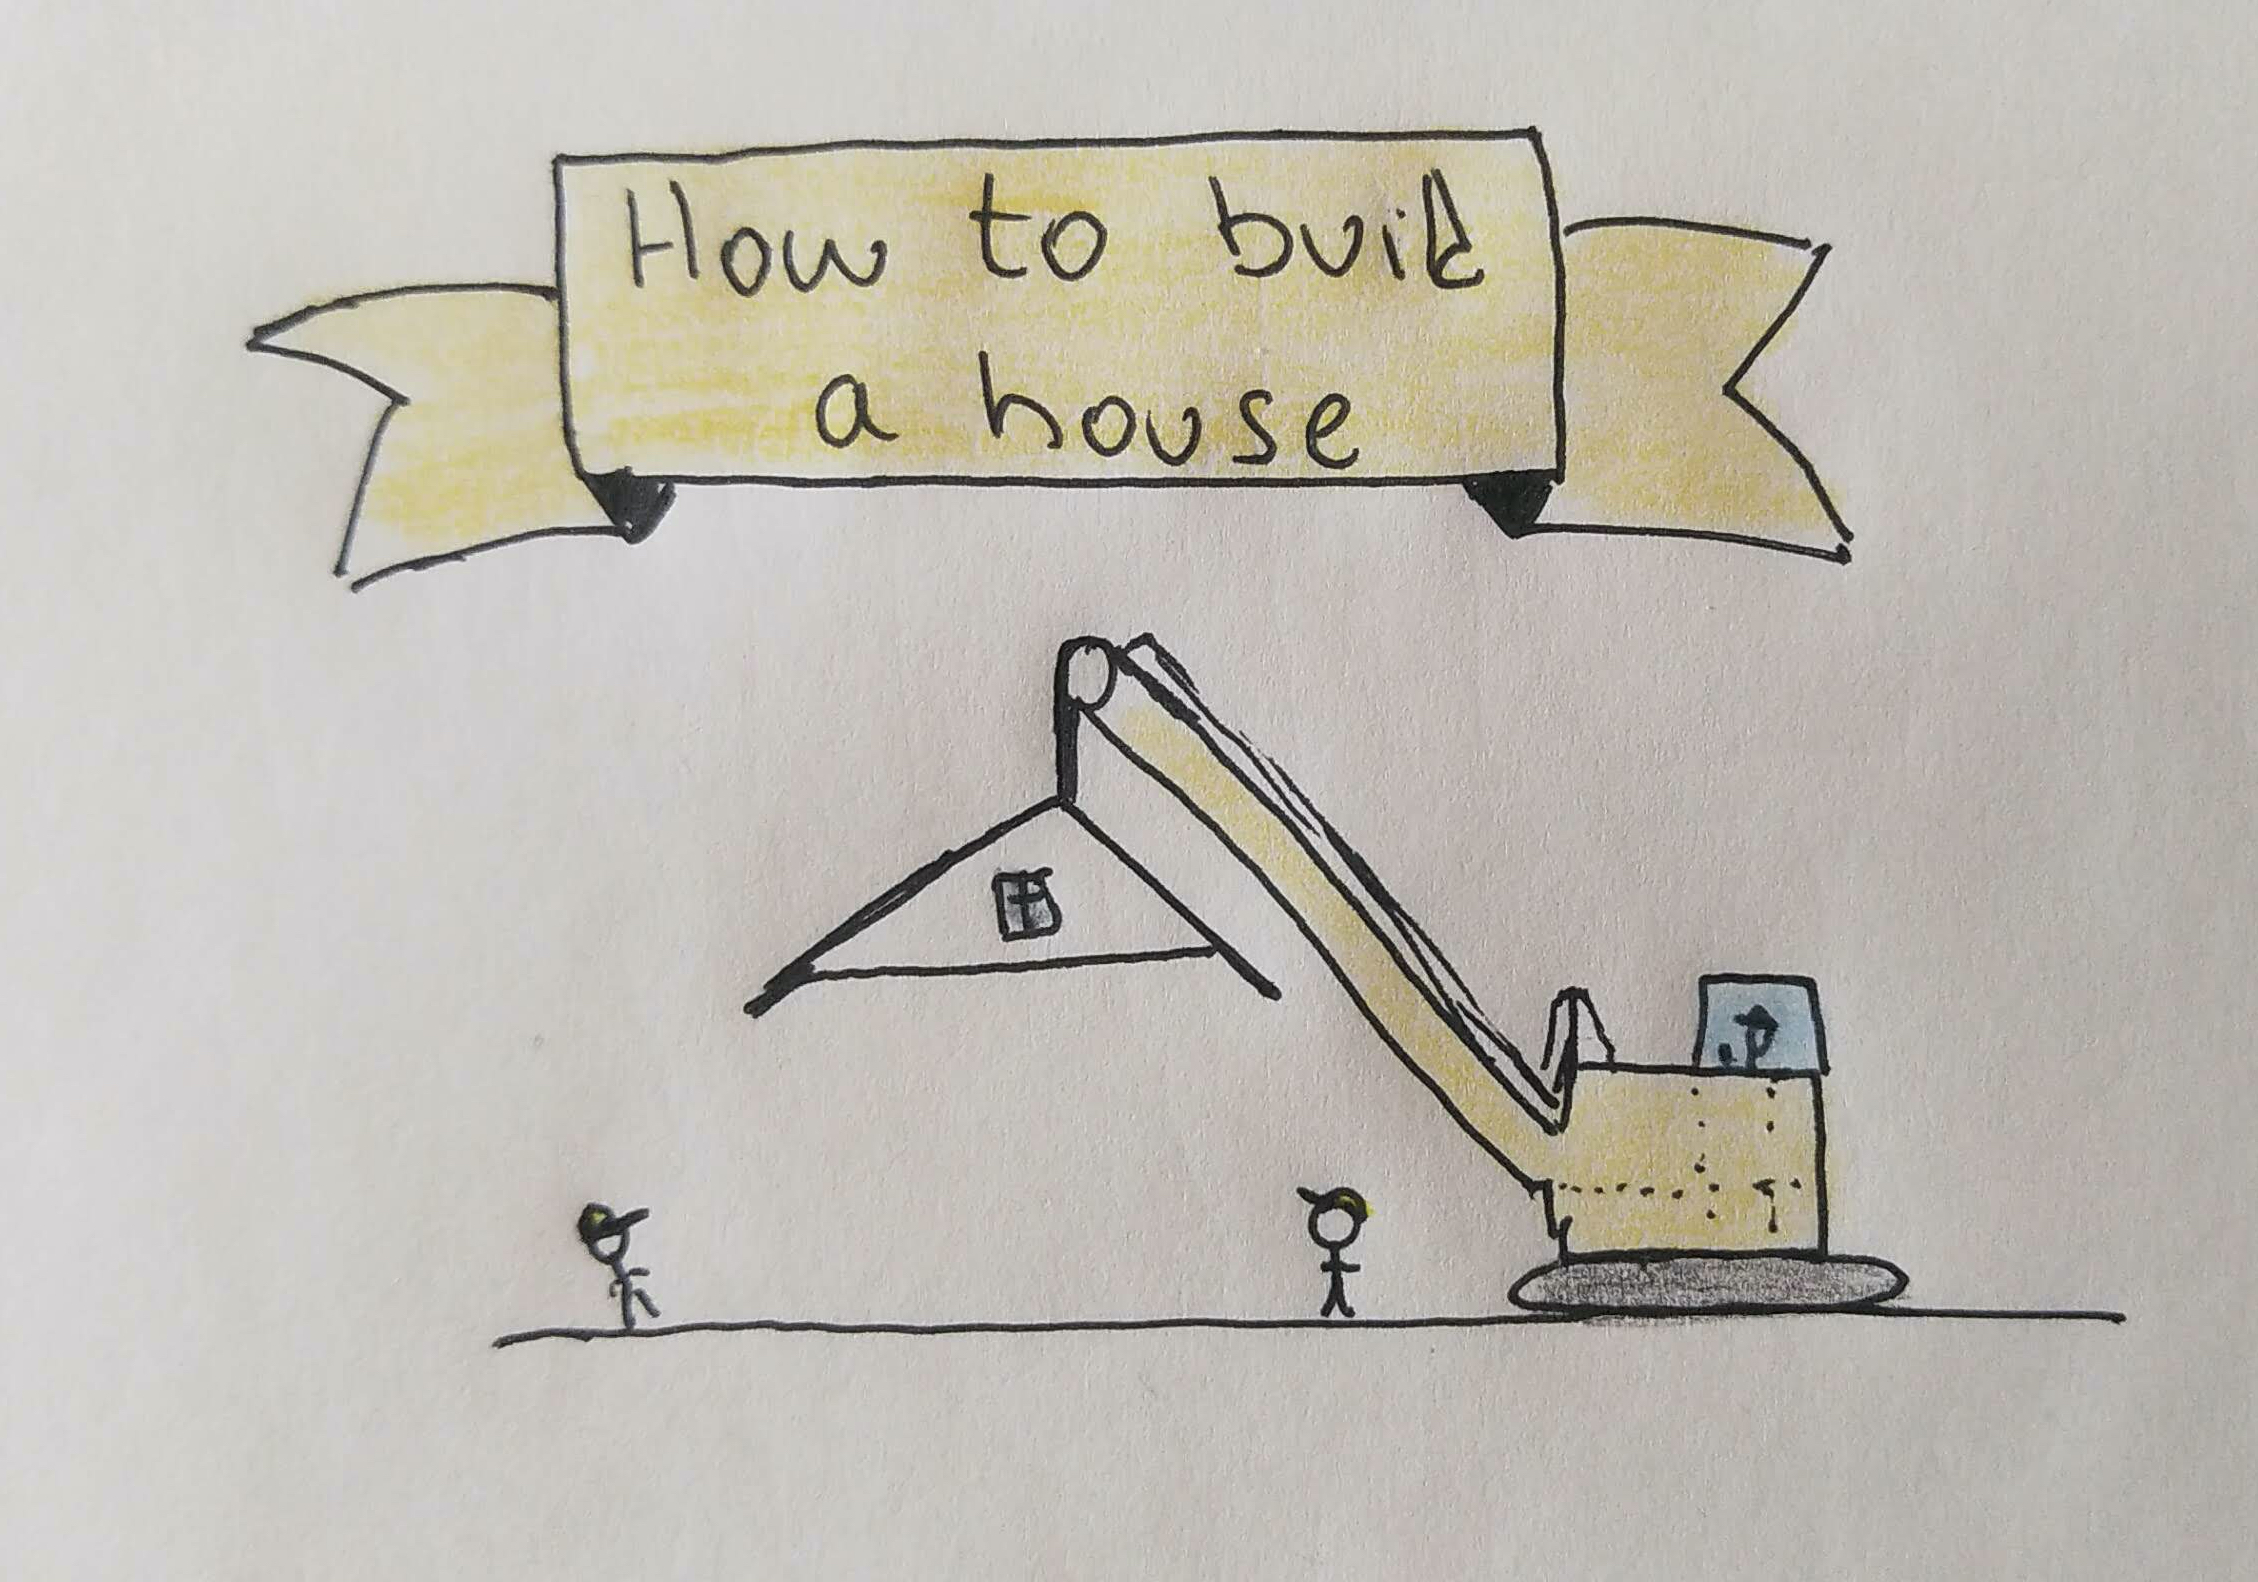 How to build
a house